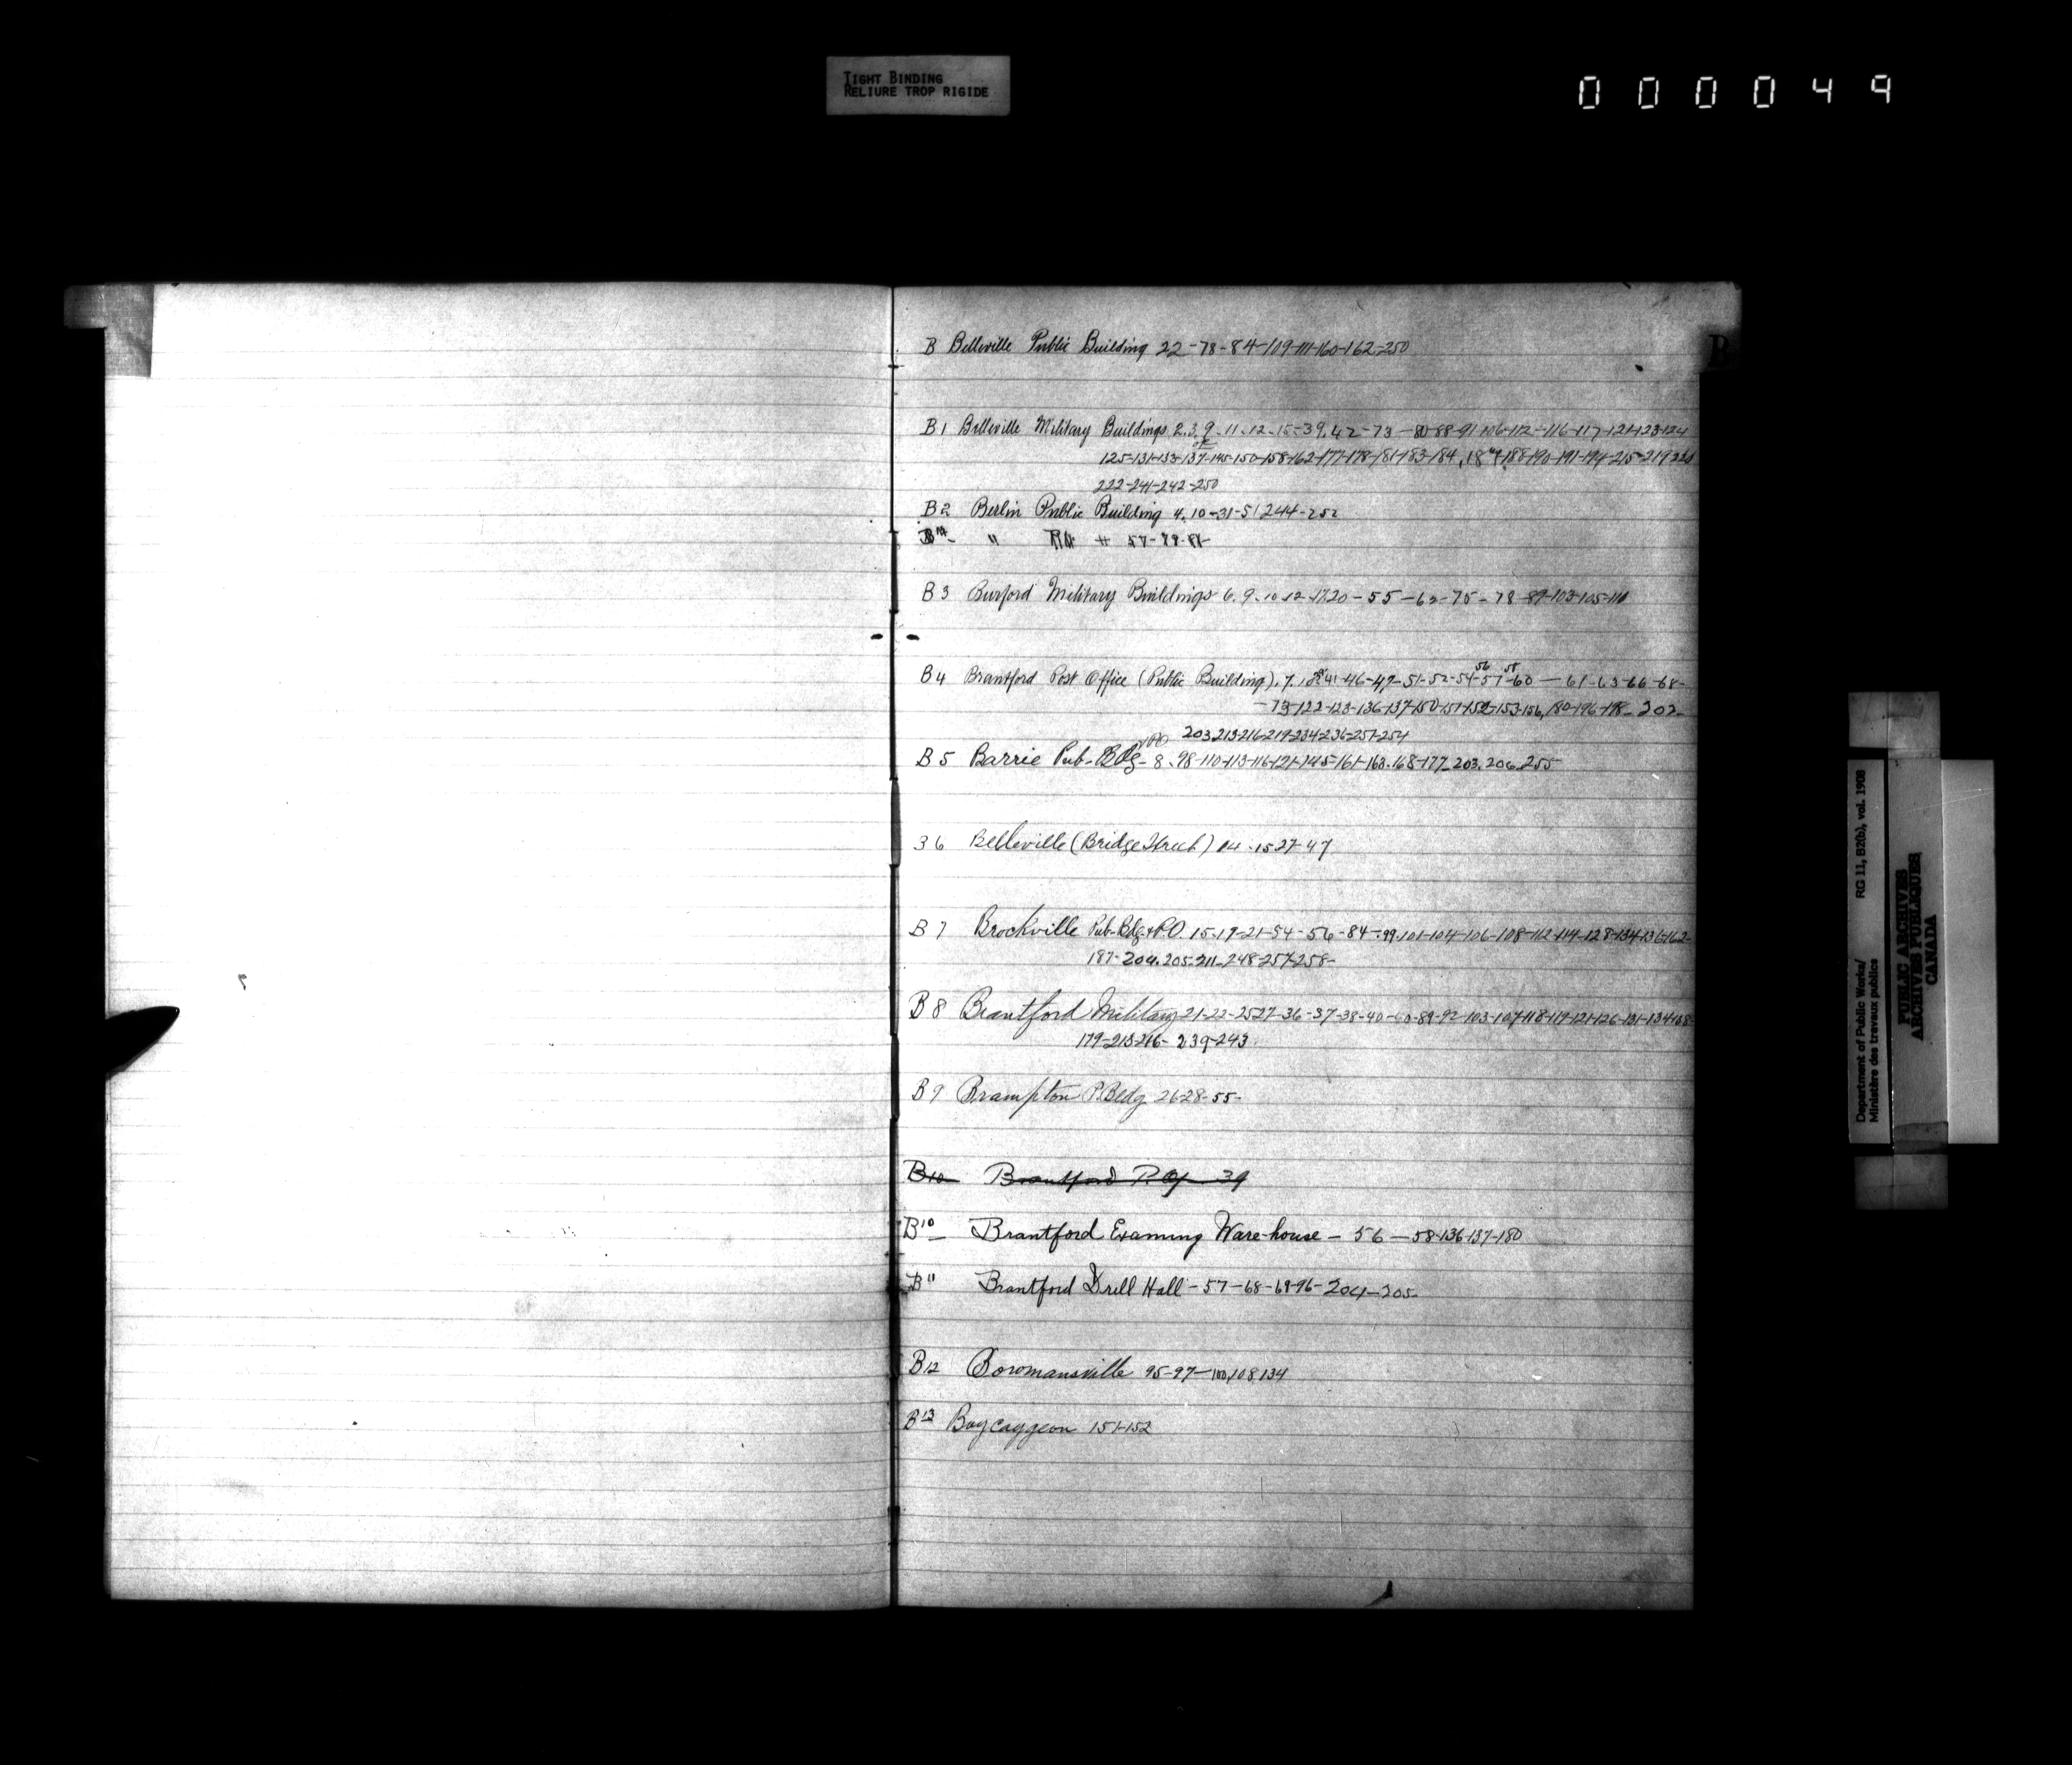 TIGHT BINDING
RELIURE TROP RIGIDE
000049
B
B Belleville Public Building 22-78-84-109-111-160-162-250
B1 Belleville Military Buildings 2.3.9.11.12.15-39.42-73-80-88-91-106-112-116-117-121-123-124
125-131-133-137-145-150-158-162-177-178-181-183-184, 188-190-191-194-215-219
222-241-242-250
B2 Berlin Public Building 4.10-31-51 244-252
" 57-79-81-
B3 Burford Military Buildings 6.9.10.12.17.20-55-63-75-78-89-103-105-110
B4 Brantford Post Office (Public Building). 7. 41-46-47-51-52-54-57-60-61-63-66-68-
56 58
-73-122-123-136-137-150-151-152-153-156, 180-196-198-202-
203-213-216-219-234-236-251-254
B5 Barrie Pub-Bdg- 8-98-110-113-116-121-145-161-163-168-177-203.206-255
B6 Belleville (Bridge Street) 14.15 27-47
B7 Brockville Pub-Bdg & P.O. 15-19-21-54-56-84-99-101-104-106-108-112-114-128-134-136-162-
187-204.205-211-248-257-258-
B8 Brantford Military 21-22-25-27-36-37-38-40-60-89-92-103-107-118-119-121-126-131-134-138-
179-213-216-239-243
B9 Brampton P.Bldg 26-28-55-
B10 Brantford P.O. 39
B10 Brantford Examing Ware-house - 56 - 58-136-137-180
B11 Brantford Drill Hall - 57-68-69-96-204-205-
B12 Bowmansville 95-97-100,108,134
B13 Boycaygeon 151-152
Department of Public Works/
Ministère des travaux publics
RG 11, B2(b), vol. 1908
PUBLIC ARCHIVES
ARCHIVES PUBLIQUES
CANADA